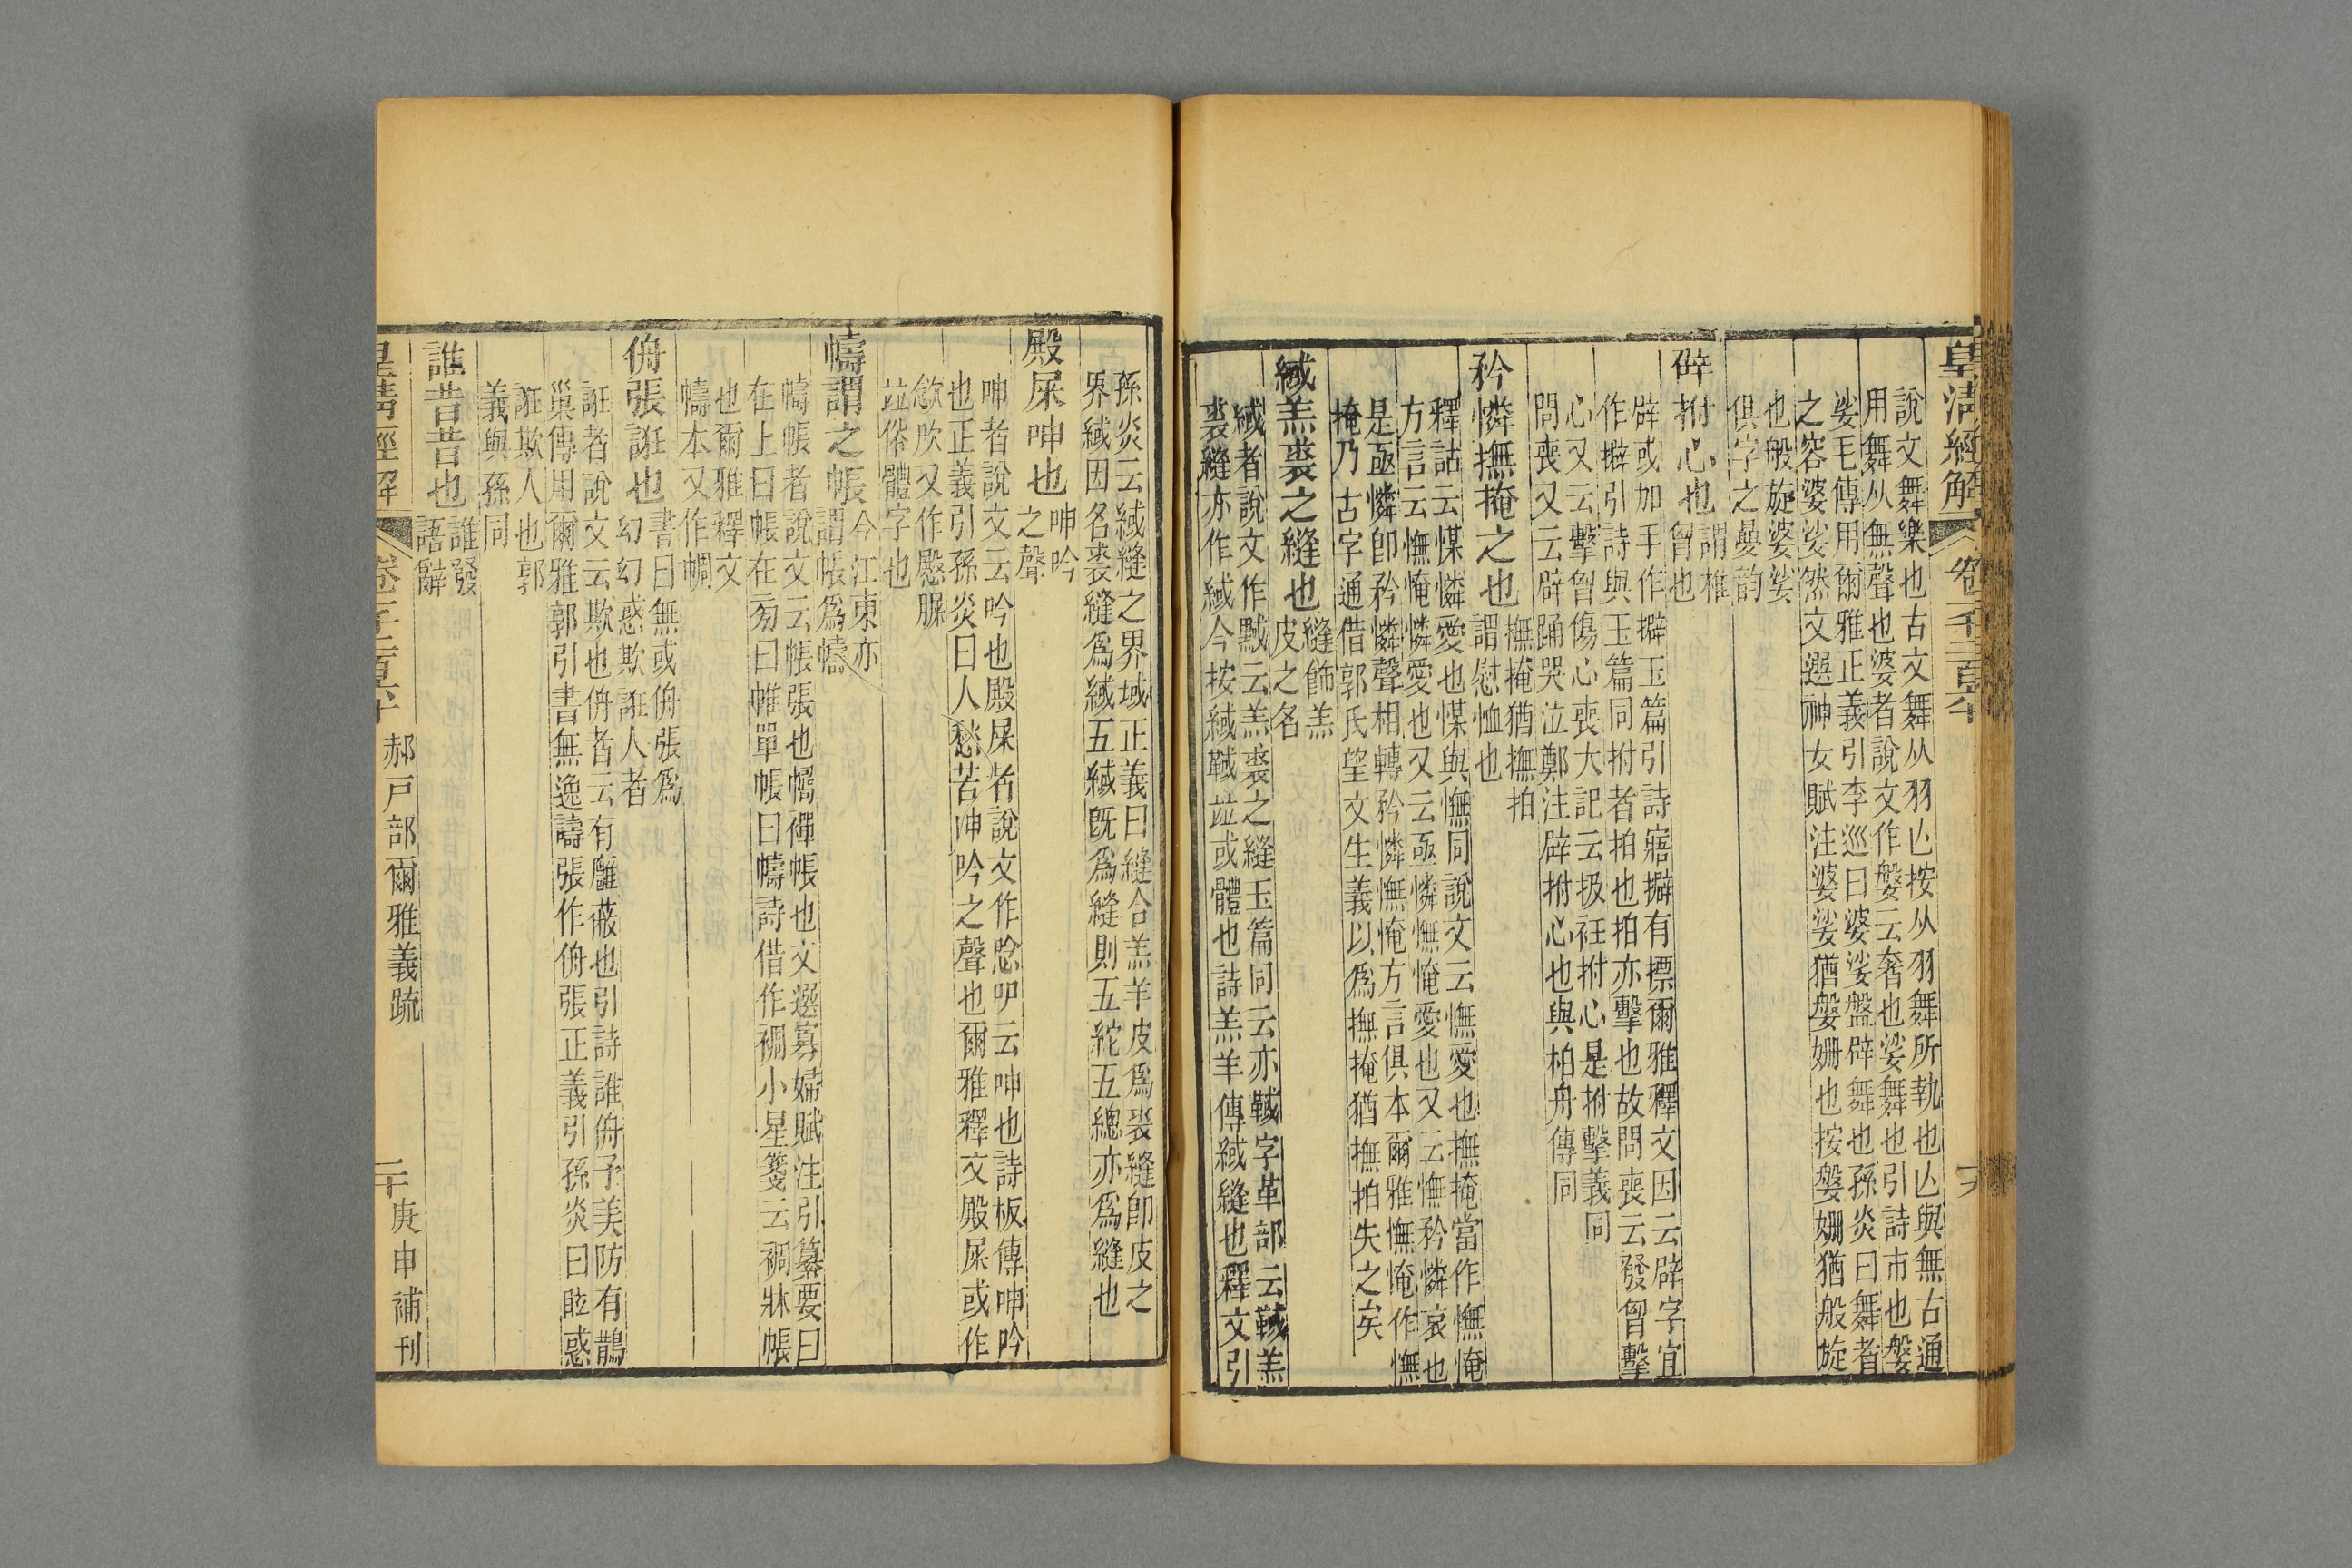 皇清經解 卷一千二百五十
說文舞樂也古文舞从羽亾按从羽舞所執也亾與無古通
用舞从無聲也婆者說文作媻云奢也娑舞也引詩市也媻
娑毛傳用爾雅正義引李巡曰婆娑盤辟舞也孫炎曰舞者
之容婆娑然文選神女賦注婆娑猶媻姍也按媻姍猶般旋
也般旋婆娑
俱字之疊韵
辟拊心也 謂椎
胷也
辟或加手作擗玉篇引詩寤擗有摽爾雅釋文因云辟字宜
作擗引詩與玉篇同拊者拍也拍亦擊也故問喪云發胷擊
心又云擊胷傷心喪大記云扱衽拊心是拊擊義同
問喪又云辟踊哭泣鄭注辟拊心也與柏舟傳同
矜憐撫掩之也 撫掩猶撫拍
謂慰恤也
釋詁云㤿憐愛也㤿與憮同說文云憮愛也撫掩當作憮㤿
方言云憮㤿憐愛也又云亟憐憮㤿愛也又云憮矜憐哀也
是亟憐卽矜憐聲相轉矜憐憮㤿方言俱本爾雅憮㤿作憮
掩乃古字通借郭氏望文生義以爲撫掩猶撫拍失之矣
緎羔裘之縫也 縫飾羔
皮之名
緎者說文作黬云羔裘之縫玉篇同云亦䩹字革部云䩹羔
裘縫亦作緎今按緎䩹竝或體也詩羔羊傳緎縫也釋文引
孫炎云緎縫之界域正義曰縫合羔羊皮爲裘縫卽皮之
界緎因名裘縫爲緎五緎旣爲縫則五紽五總亦爲縫也
殿屎呻也 呻吟
之聲
呻者說文云吟也殿屎者說文作唸㕧云呻也詩板傳呻吟
也正義引孫炎曰人愁苦呻吟之聲也爾雅釋文殿屎或作
歛欥又作慇脲
竝俗體字也
幬謂之帳 今江東亦
謂帳爲幬
幬帳者說文云帳張也幬襌帳也文選寡婦賦注引纂要曰
在上曰帳在㫄曰帷單帳曰幬詩借作裯小星箋云裯牀帳
也爾雅釋文
幬本又作㡏
侜張誑也 書曰無或侜張爲
幻幻惑欺誑人者
誑者說文云欺也侜者云有廱蔽也引詩誰侜予美防有鵲
巢傳用爾雅郭引書無逸譸張作侜張正義引孫炎曰眩惑
誑欺人也郭
義與孫同
誰昔昔也 誰發
語辭
皇淸經解 卷一千二百五十 郝戸部爾雅義疏 二十 庚申補刊